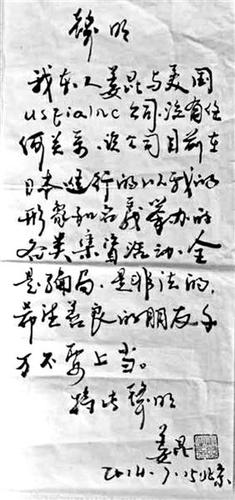 声明
我本人姜昆与美国
usfia inc公司没有任
何关系,该公司目前在
日本进行的以我的
形象和名义举办的
各类集资活动,全
是骗局,是非法的,
希望善良的朋友千
万不要上当。
特此声明
姜昆
2014.7.15北京